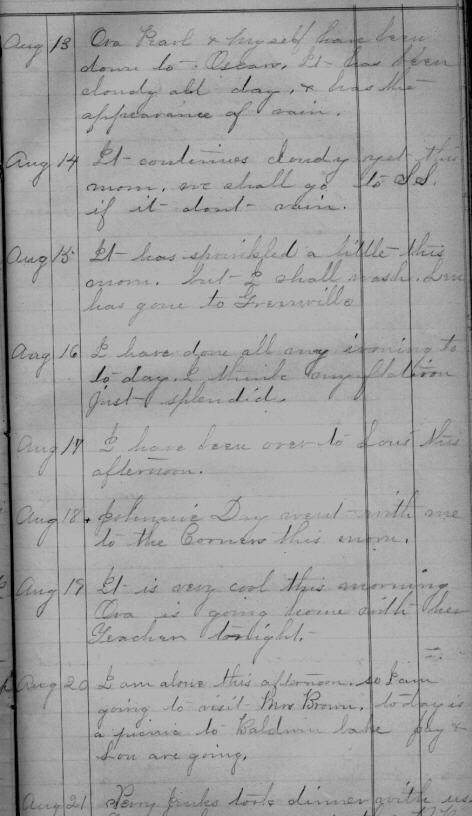 Aug 13 Ova Pearl & myself have been
down to Oscars. It has been
cloudy all day, & has the
appearance of rain.
Aug 14 It continues cloudy yet this
morn. we shall go to S.S.
if it dont rain.
Aug 15 It has sprinkled a little this
morn. but I shall wash.
has gone to Greenville
Aug 16 I have done all my ironing to
to day. I think my flatiron
just splendid.
Aug 17 I have been over to Lou's this
afternoon.
Aug 18. Johnnie Day went with me
to the Corners this morn.
Aug 19 It is very cool this morning
Ova is going home with her
Teacher tonight.
Aug 20 I am alone this afternoon. so I am
going to visit Mrs Brown. to day is
a picnic to Baldwin lake &
Lou are going.
Aug 21 Perry Jenks took dinner with us.